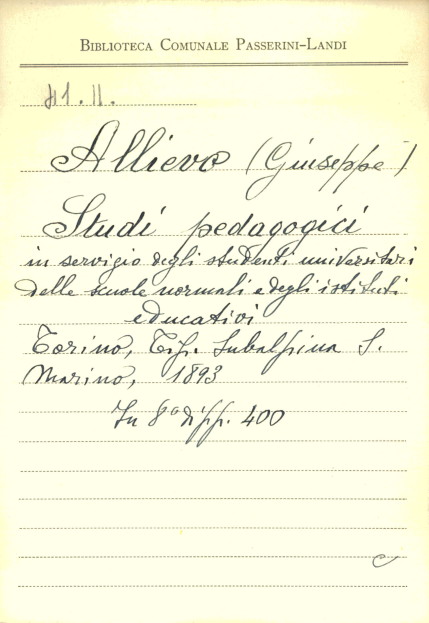 BIBLIOTECA COMUNALE PASSERINI-LANDI
41. II.
Allievo (Giuseppe)
Studi pedagogici
in servigio degli studenti universitari
delle scuole normali e degli istituti
educativi
Torino, Tip. Subalpina S.
Marino, 1893
In 8° di pp. 400
c